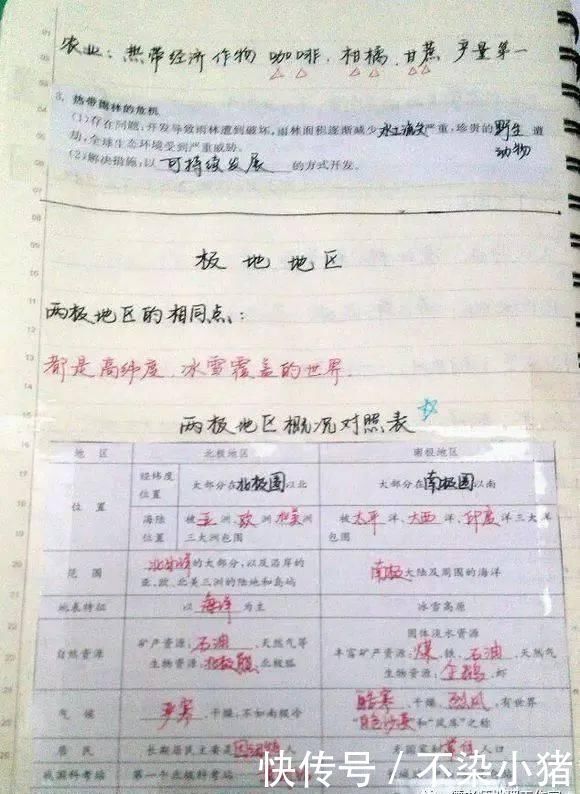 农业：热带经济作物 咖啡、柑橘、甘蔗 产量第一
3. 热带雨林的危机
(1)存在问题：开发导致雨林遭到破坏，雨林面积逐渐减少水土流失严重，珍贵的野生动物遭
劫，全球生态环境受到严重威胁。
(2)解决措施：以可持续发展的方式开发。
极地地区
两极地区的相同点：
都是高纬度，冰雪覆盖的世界
两极地区概况对照表
地 区 北极地区 南极地区
位 置
经纬度位置 大部分在北极圈以北 大部分在南极圈以南
海陆位置 被亚洲、欧洲北美洲三大洲包围 被太平洋、大西洋、印度洋三大洋包围
范 围 北冰洋的大部分，以及沿岸的亚、欧、北美三洲的陆地和岛屿 南极大陆及周围的海洋
地表特征 以海洋为主 冰雪高原
自然资源 矿产资源：石油、天然气等 生物资源：北极熊、北极狐 固体淡水资源 丰富矿产资源：煤、铁、石油、天然气 生物资源：企鹅、虾
气 候 严寒、干燥，不如南极冷 酷寒、干燥、烈风，有世界"白色沙漠"和"风库"之称
居 民 长期居民主要是因纽特人 人口
我国科考站 第一个北极科考站
快传号 / 不染小猪